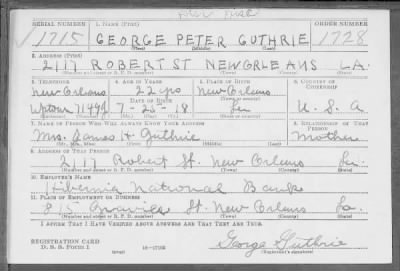 SERIAL NUMBER 1. NAME (Print) ORDER NUMBER
1715 GEORGE PETER GUTHRIE 1728
(First) (Middle) (Last)
2. ADDRESS (Print)
2117 ROBERT ST NEW ORLEANS LA.
(Number and street or R. F. D. number) (Town) (County) (State)
3. TELEPHONE 4. AGE IN YEARS 5. PLACE OF BIRTH 6. COUNTRY OF CITIZENSHIP
New Orleans 22 yrs New Orleans
DATE OF BIRTH
Uptown 7-25-18 La U. S. A
7. NAME OF PERSON WHO WILL ALWAYS KNOW YOUR ADDRESS 8. RELATIONSHIP OF THAT PERSON
Mrs. James H. Guthrie Mother
(Mr., Mrs., Miss) (First) (Middle) (Last)
9. ADDRESS OF THAT PERSON
2117 Robert St. New Orleans La.
(Number and street or R. F. D. number) (Town) (County) (State)
10. EMPLOYER'S NAME
Hibernia National Bank
11. PLACE OF EMPLOYMENT OR BUSINESS
815 Gravier St. New Orleans La.
(Number and street or R. F. D. number) (Town) (County) (State)
I AFFIRM THAT I HAVE VERIFIED ABOVE ANSWERS AND THAT THEY ARE TRUE.
REGISTRATION CARD
D. S. S. Form 1 (over) 16-17105 George Guthrie
(Registrant's signature)